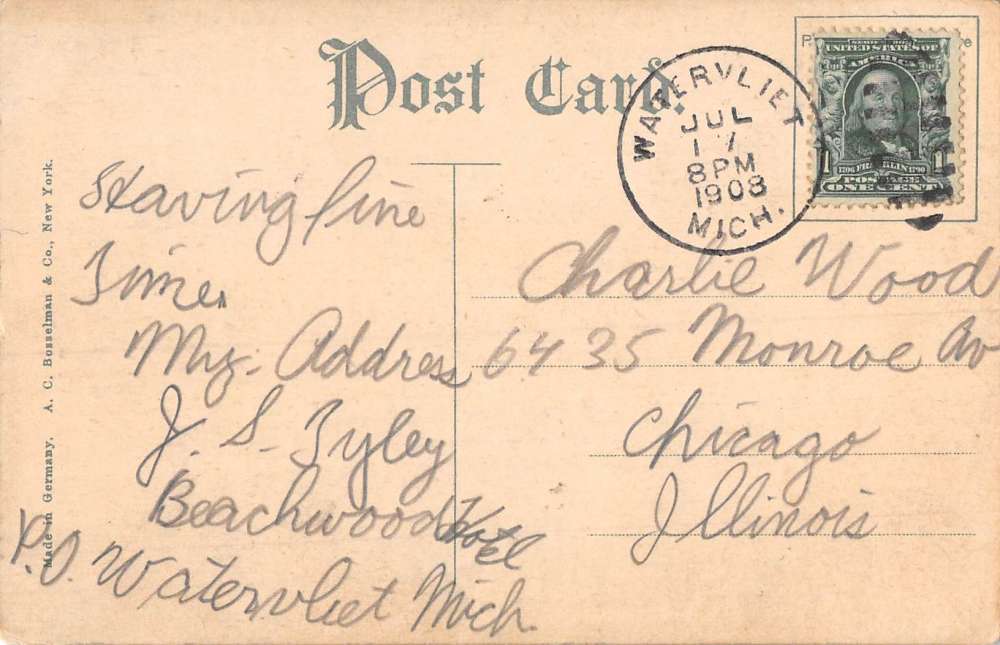 Post Card.
WATERVLIET
JUL
17
8 PM
1908
MICH.
SERIES 1902
UNITED STATES OF
AMERICA
1 1706 FRANKLIN 1790 1
POSTAGE
ONE CENT
Having fine
Time.
My. Address
J. S. Zyley
Beachwood Hotel
P.O. Watervliet Mich.
Charlie Wood
6435 Monroe Av
Chicago
Illinois
Made in Germany. A. C. Bosselman & Co., New York.